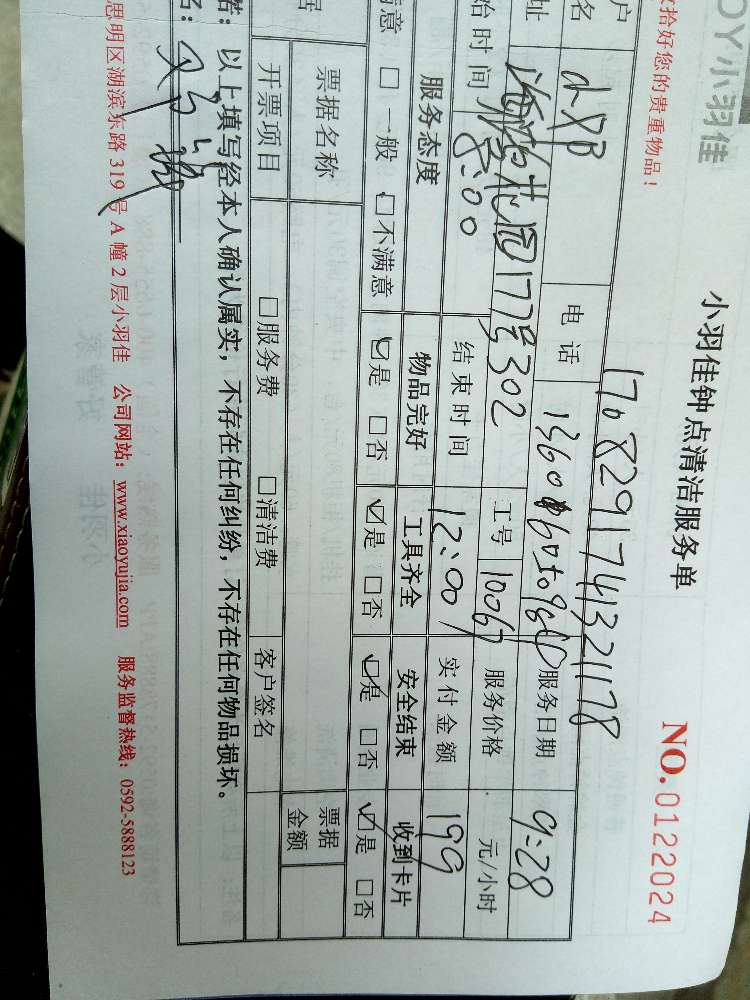 OY小羽佳
小羽佳钟点清洁服务单
NO.0122024
拾好您的贵重物品！
1708291741321178
户名 电话 服务日期 9.28
址 海 花园177号302 工号 1006 服务价格 元/小时
始时间 8:00 结束时间 12:00 实付金额 199
服务态度 物品完好 工具齐全 安全结束 收到卡片
满意 □一般 □不满意 ☑是 □否 ☑是 □否 ☑是 □否 ☑是 □否
居 票据名称 票据金额
开票项目 □服务费 □清洁费 客户签名
诺：以上填写经本人确认属实，不存在任何纠纷，不存在任何物品损坏。
名：
思明区湖滨东路319号A幢2层小羽佳 公司网站：www.xiaoyujia.com 服务监督热线：0592-5888123